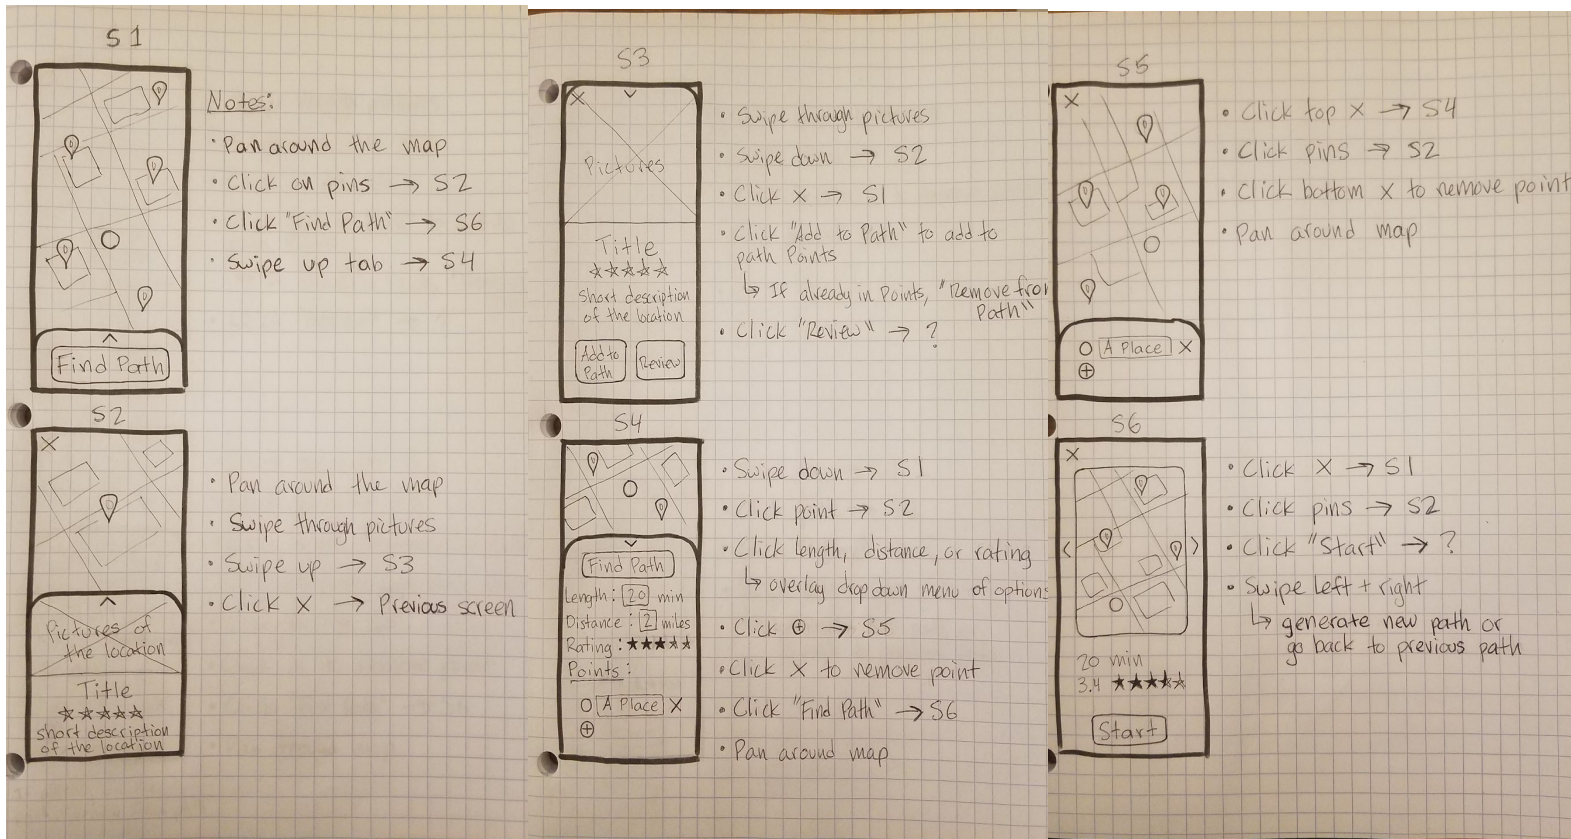 S1
Find Path
Notes:
• Pan around the map
• Click on pins → S2
• Click "Find Path" → S6
• Swipe up tab → S4
S2
X
Pictures of
the location
Title
short description
of the location
• Pan around the map
• Swipe through pictures
• Swipe up → S3
• Click X → Previous screen
S3
X
Pictures
Title
short description
of the location
Add to
Path
Review
• Swipe through pictures
• Swipe down → S2
• Click X → S1
• Click "Add to Path" to add to
path Points
↳ If already in Points, "Remove from
Path"
• Click "Review" → ?
S4
Find Path
Length: 20 min
Distance: 2 miles
Rating: ★★★★★
Points:
A Place X
⊕
• Swipe down → S1
• Click point → S2
• Click length, distance, or rating
↳ overlay dropdown menu of options
• Click ⊕ → S5
• Click X to remove point
• Click "Find Path" → S6
• Pan around map
S5
X
A Place X
⊕
• Click top X → S4
• Click pins → S2
• Click bottom X to remove point
• Pan around map
S6
X
< >
20 min
3.4 ★★★★☆
Start
• Click X → S1
• Click pins → S2
• Click "Start" → ?
• Swipe left + right
↳ generate new path or
go back to previous path